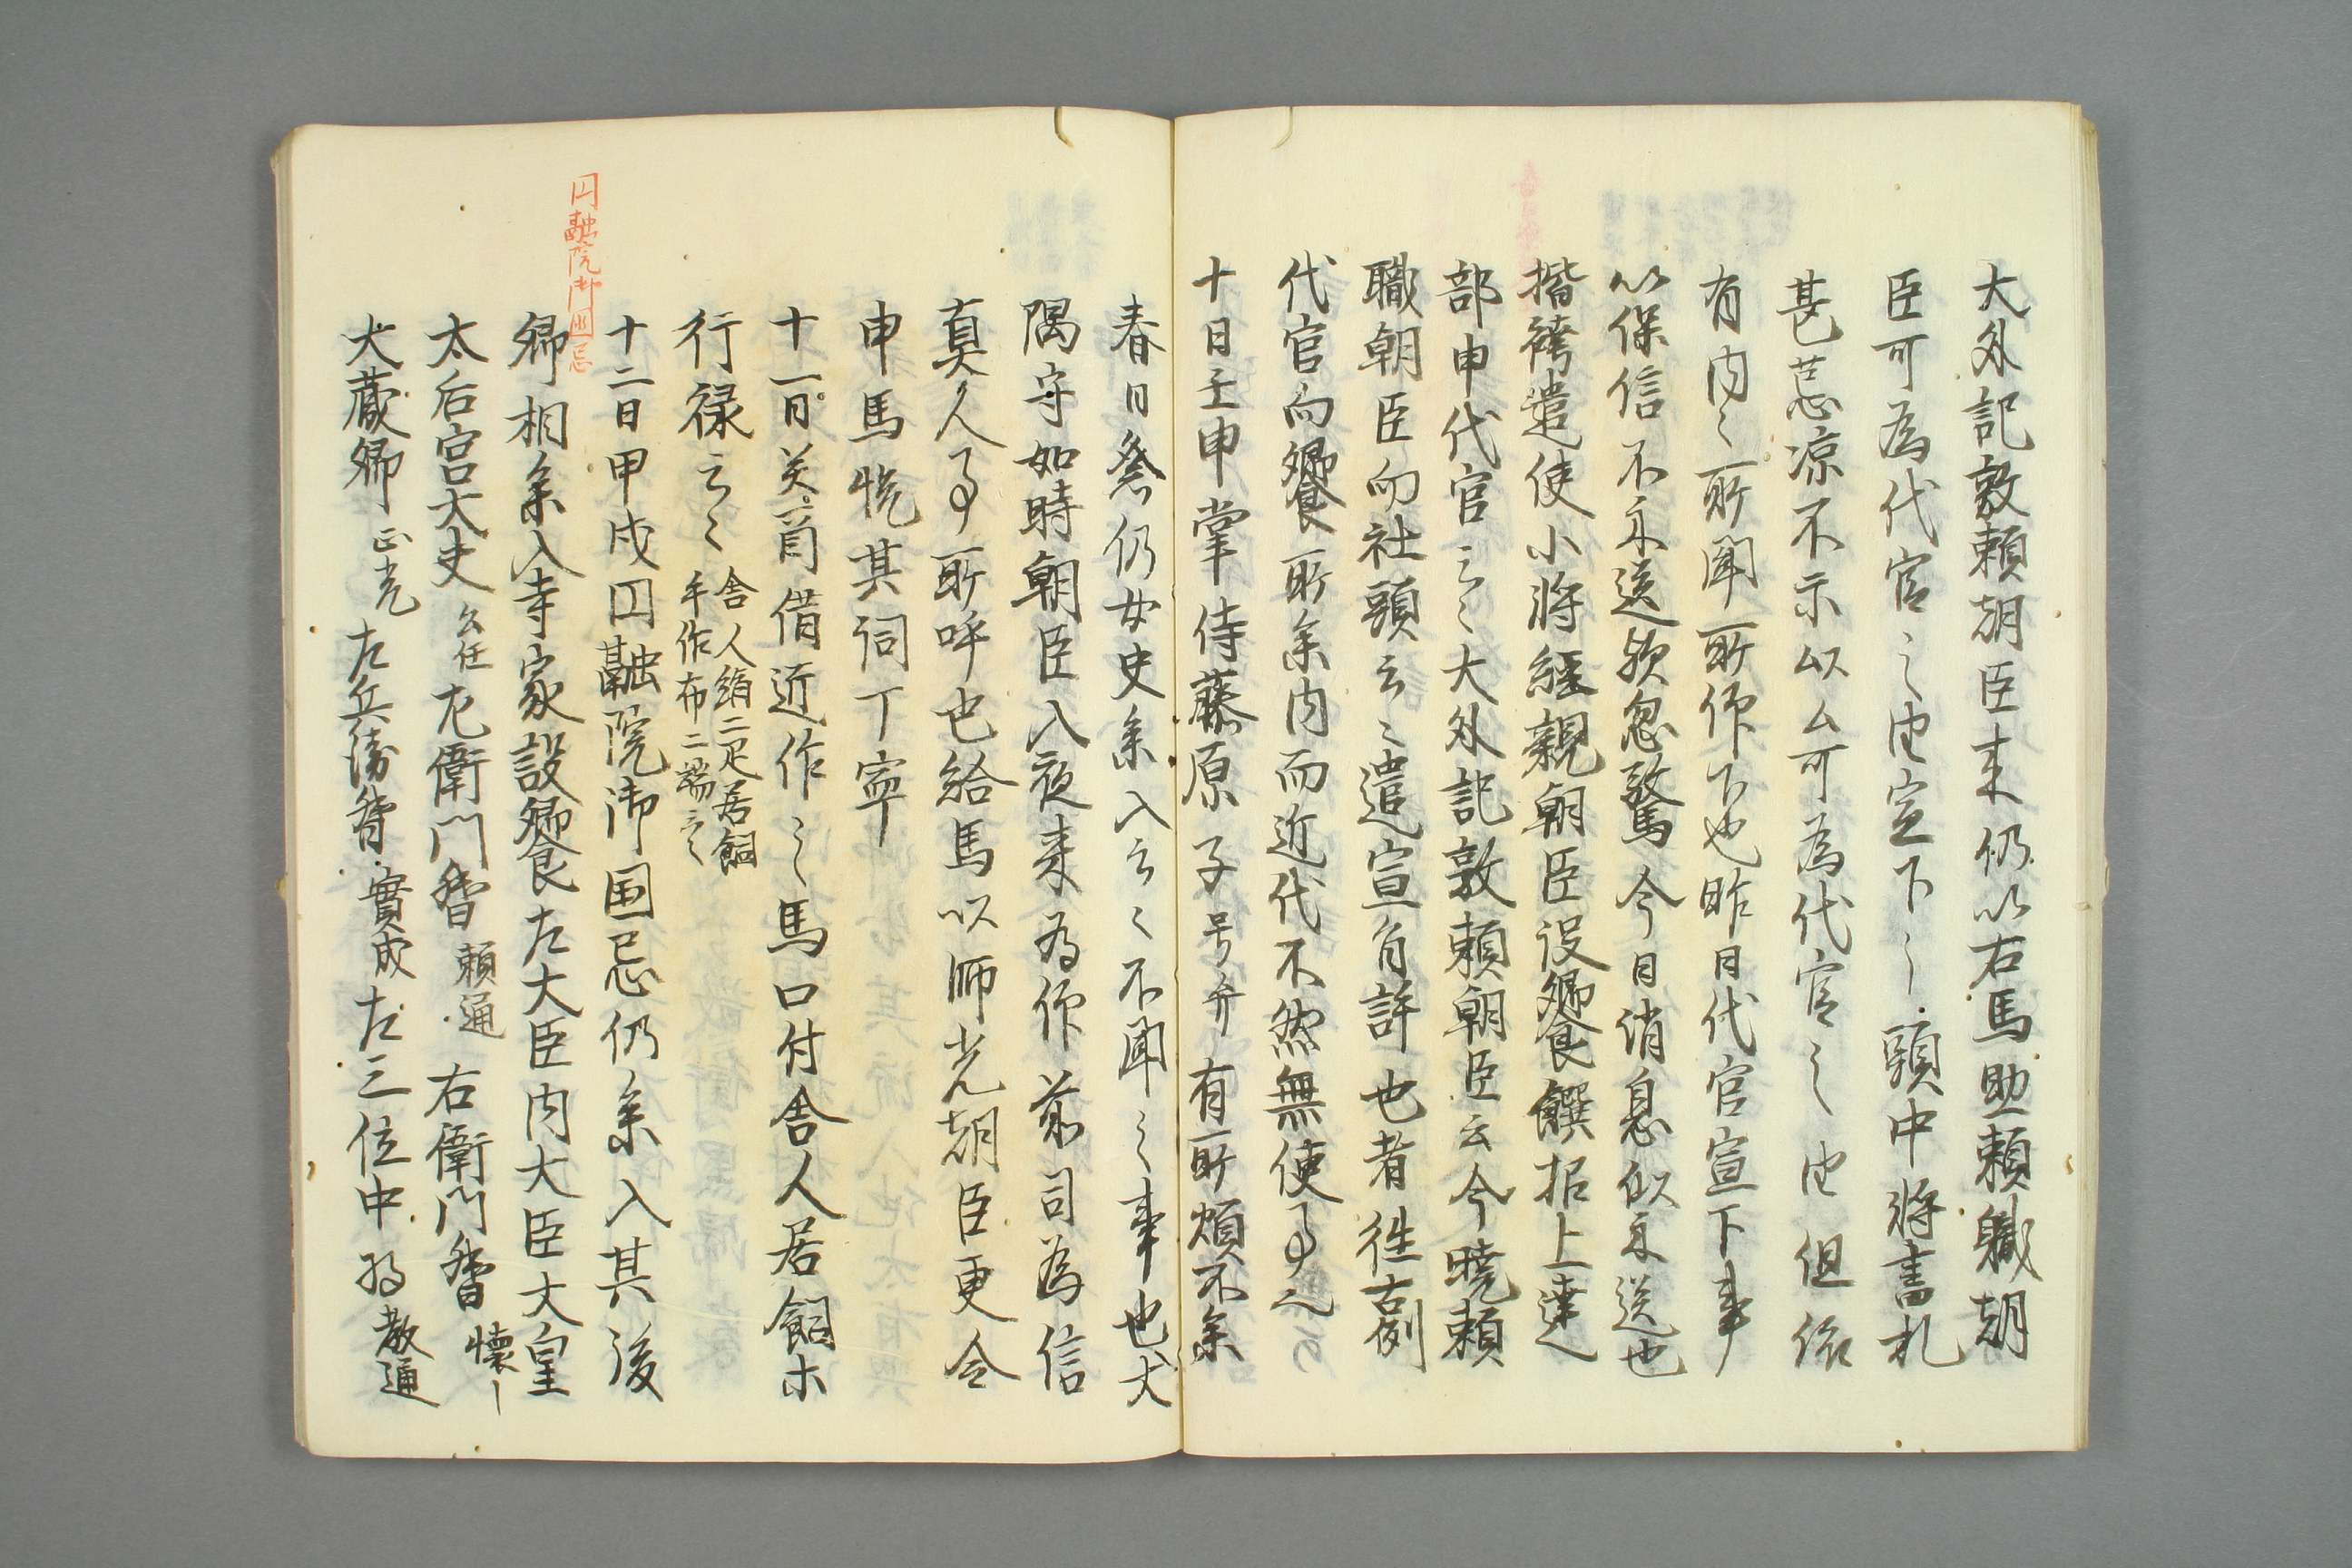 大外記敦頼朝臣来仍以右馬助頼職朝
臣可為代官之由宣下之頭中将書札
甚荒凉不示以ム可為代官之由但依
有内々所聞所仰下也昨日代官宣下事
以保信不示送欤忽驚今日消息似示送也
揩袴遣使小将経親朝臣設饗饌拒上達
部申代官云々大外記敦頼朝臣云今暁頼
職朝臣向社頭云々遣宣旨許也者往古例
代官向饗所参内而近代不然無使事也
十日壬申掌侍藤原子号弁有所煩不参
春日祭仍女史参入云々不聞之事也大
隅守如時朝臣入夜来為仰前司為信
真人事所呼也給馬以師光朝臣更令
申馬悦其詞丁寧
十一日关酉借近作之馬口付舎人居飼木
行禄云々 舎人絹二疋居飼
手作布二端云々
円融院御国忌
十二日甲戌円融院御国忌仍参入其後
卿相参入寺家設饗左大臣内大臣大皇
太后宮大夫公任左衛門督頼通右衛門督懐ー
大蔵卿正光左兵衛督實成左三位中将教通